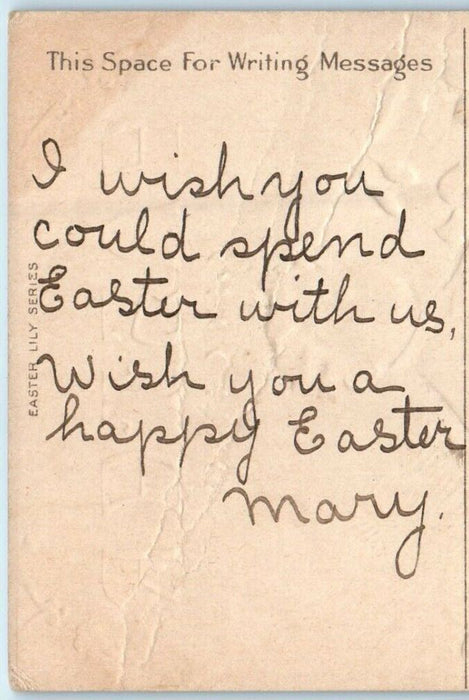 This Space For Writing Messages
I wish you
could spend
Easter with us,
Wish you a
happy Easter
Mary.
EASTER LILY SERIES